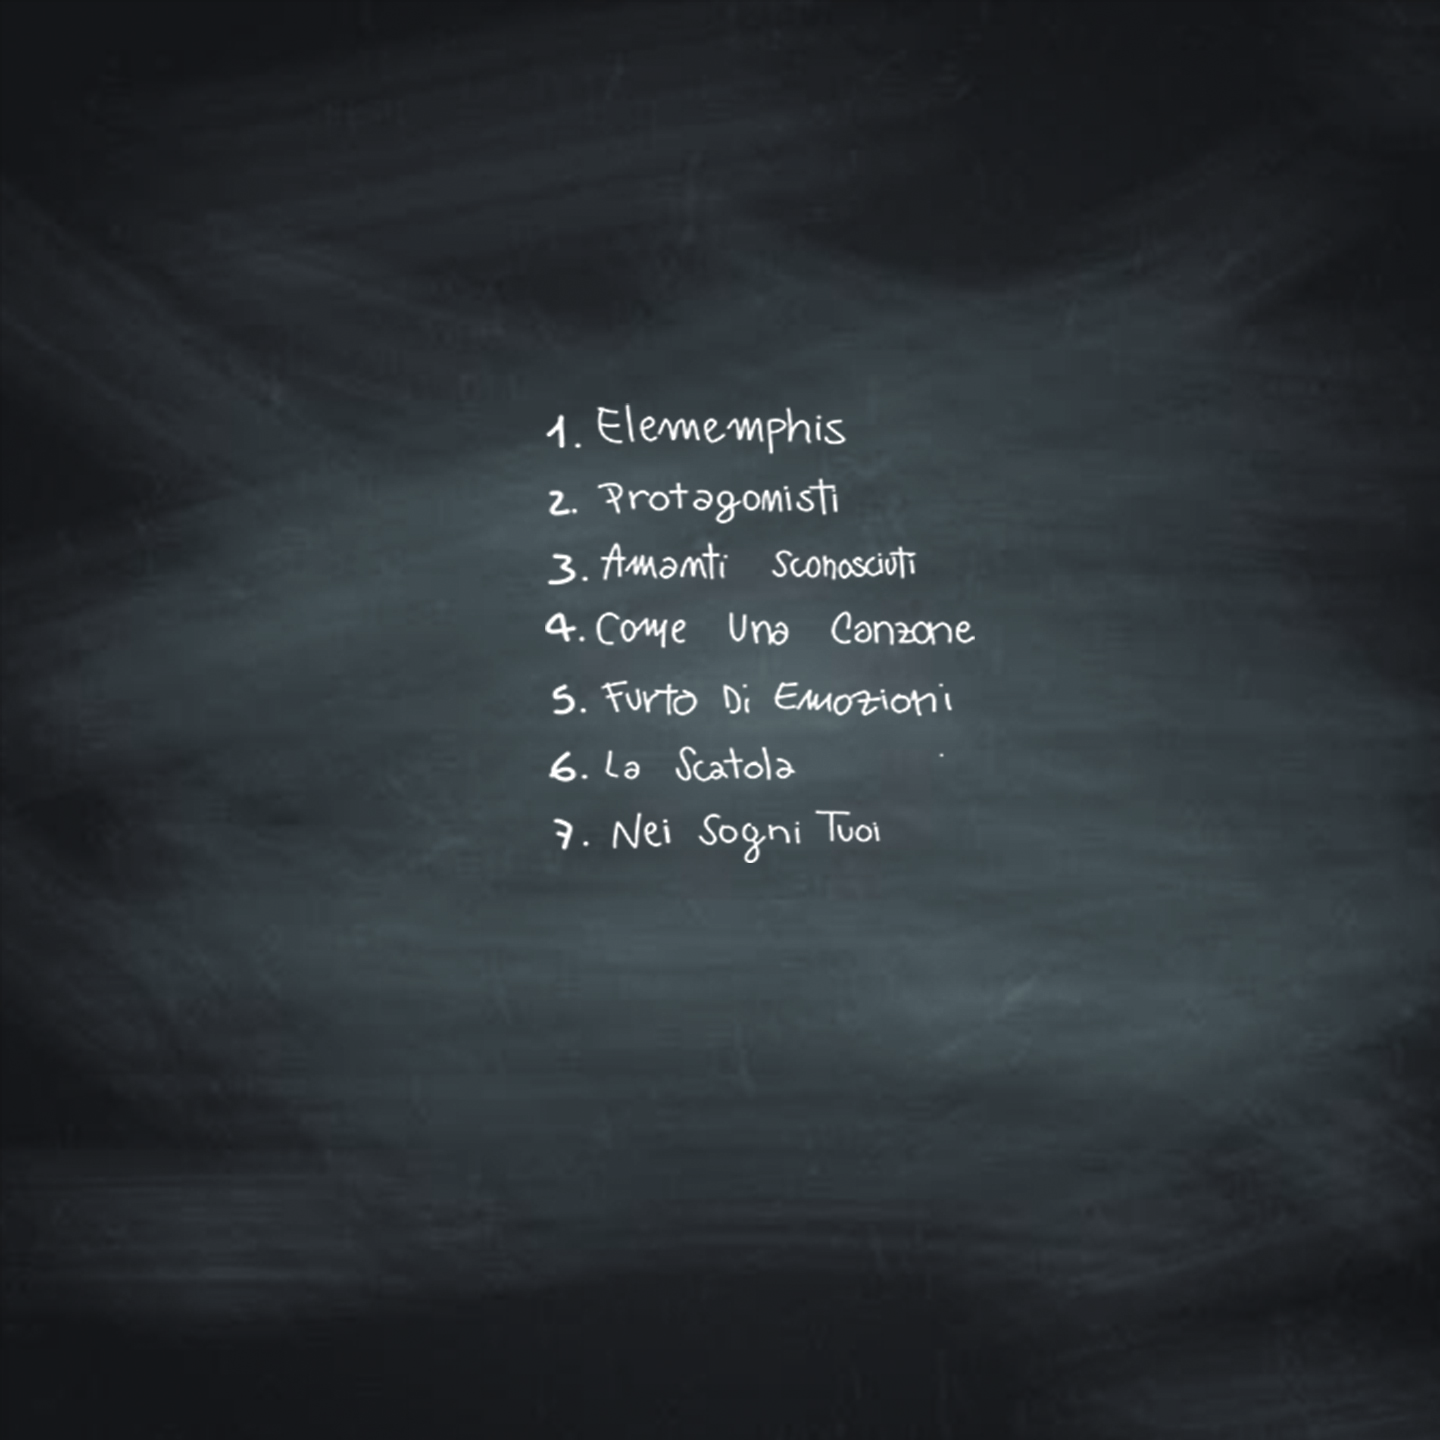 1. Elememphis
2. Protagonisti
3. Amanti Sconosciuti
4. Come Una Canzone
5. Furto Di Emozioni
6. La Scatola
7. Nei Sogni Tuoi